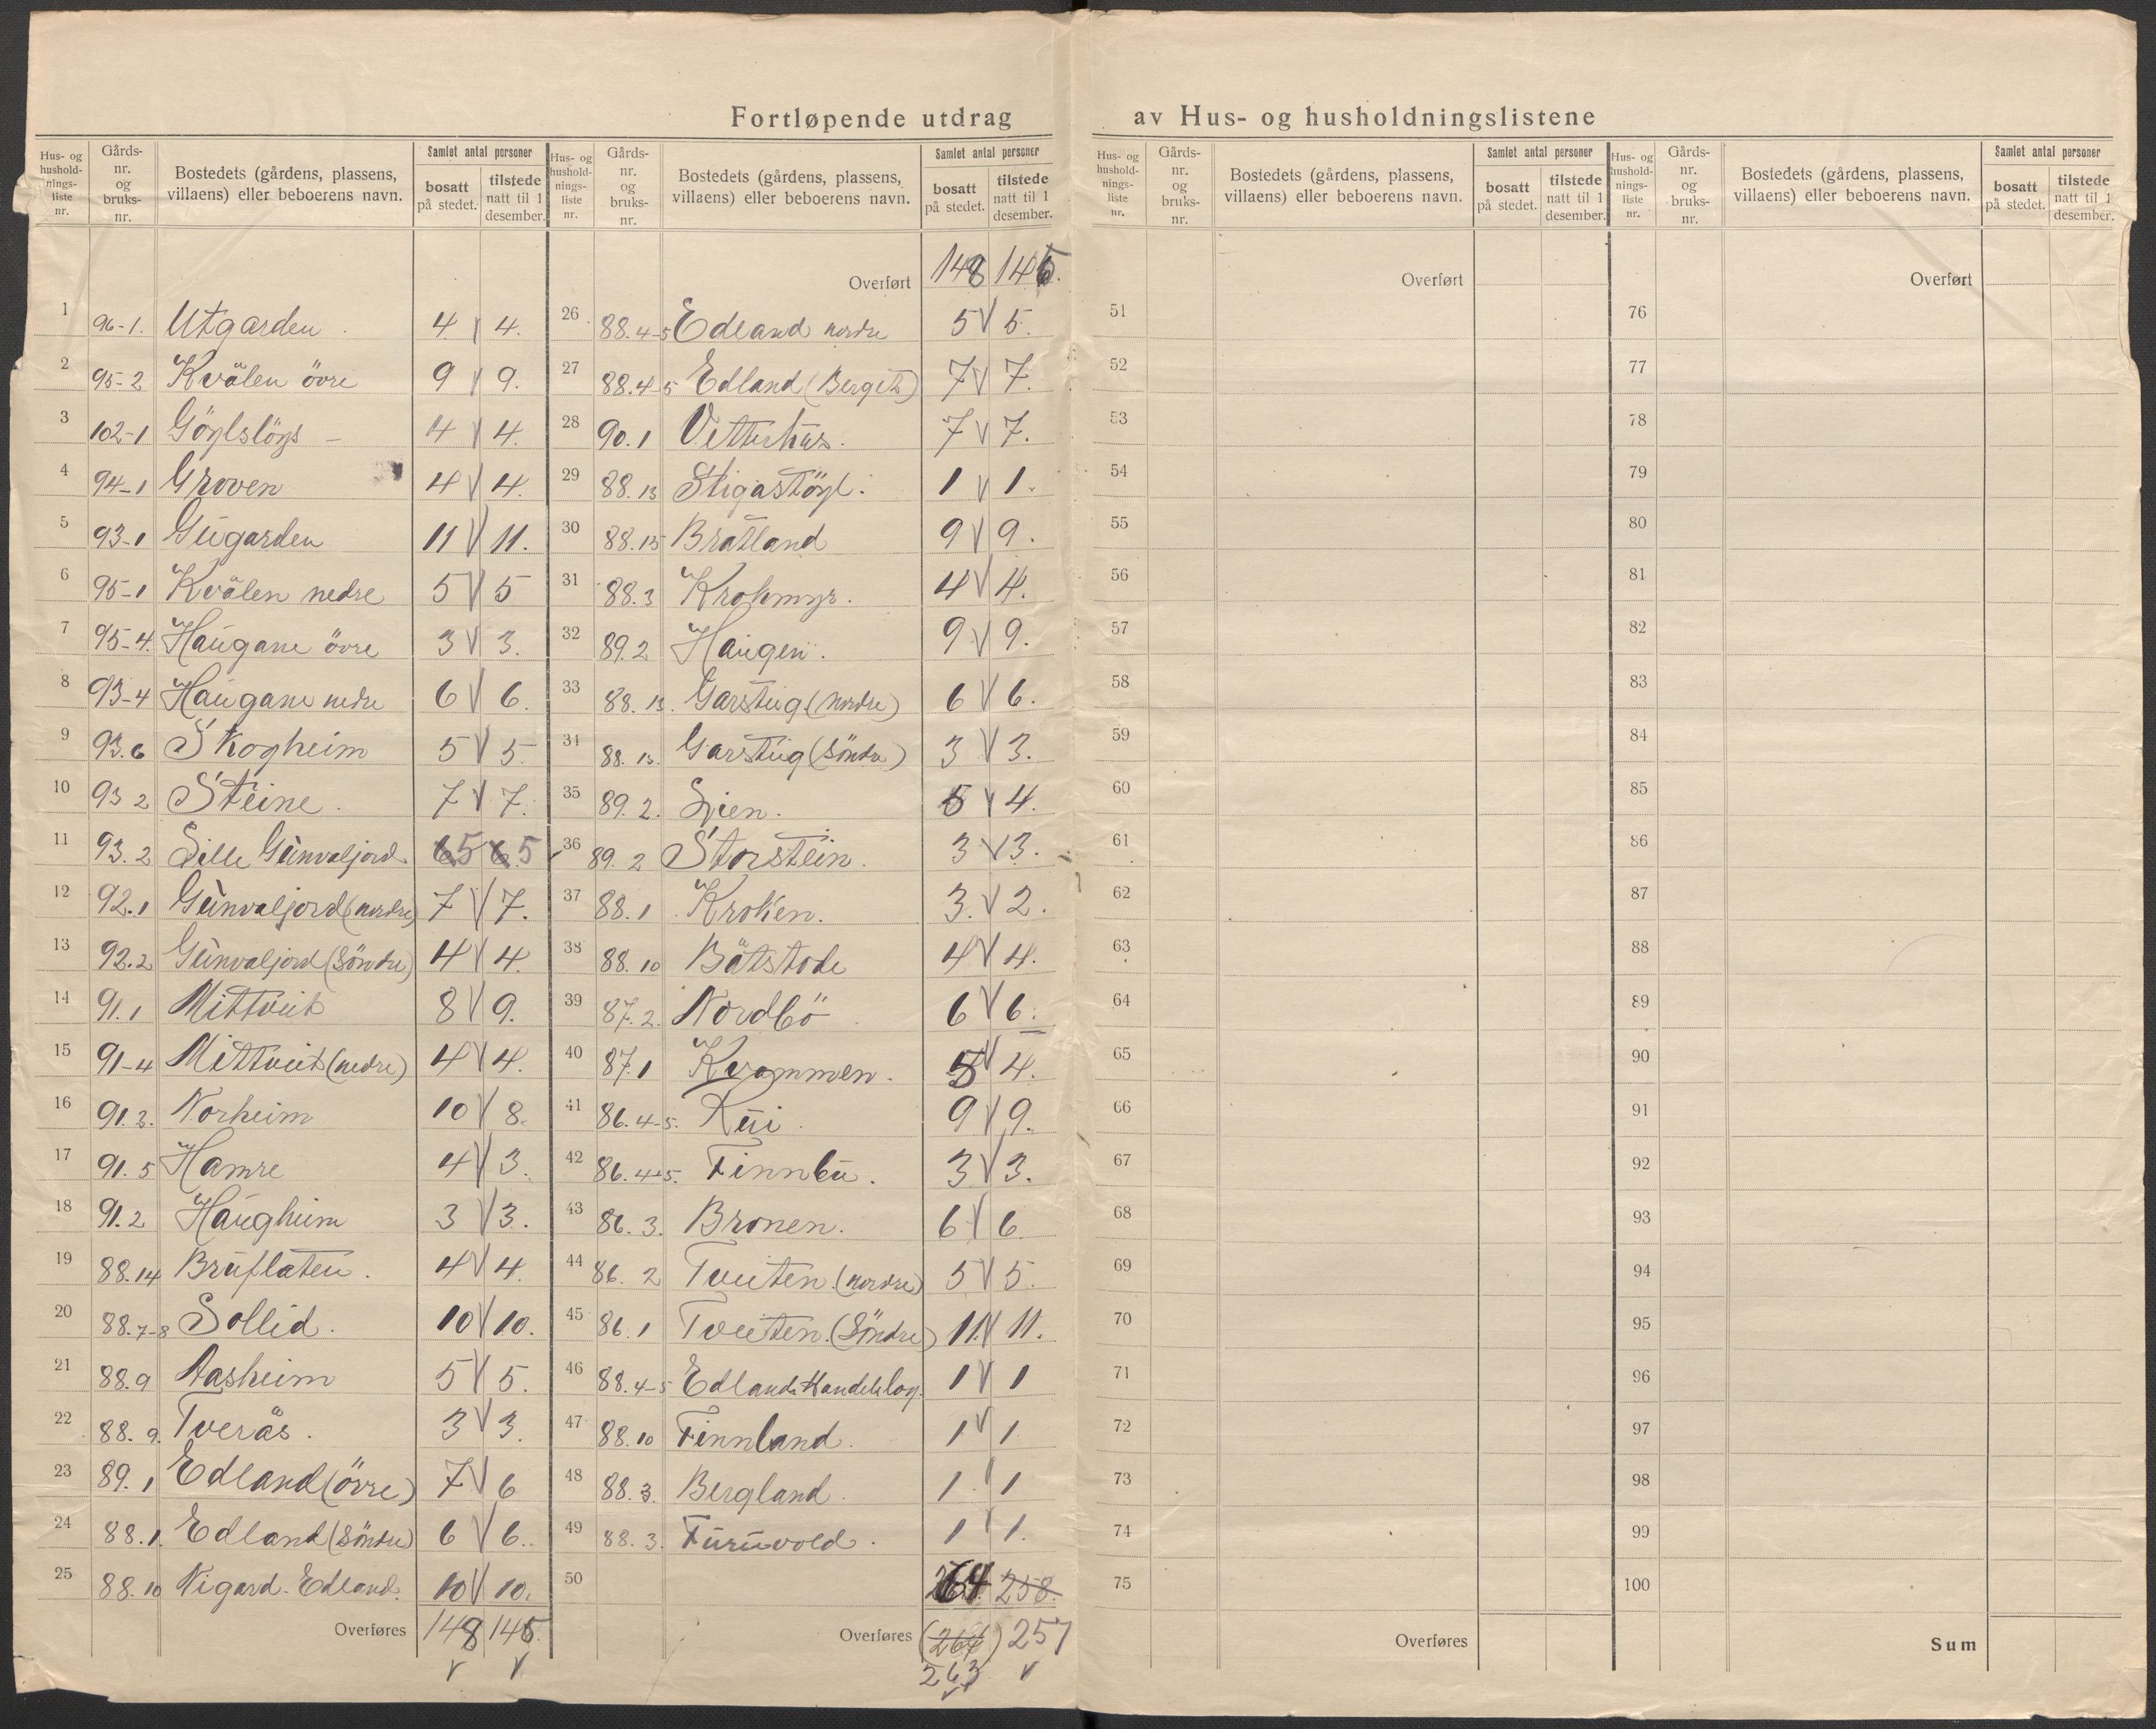 Fortløpende utdrag av Hus- og husholdningslistene
Hus- og hushold-nings-liste nr. | Gårds-nr. og bruks-nr. | Bostedets (gårdens, plassens, villaens) eller beboerens navn. | Samlet antal personer | bosatt på stedet. | tilstede natt til 1 desember.
1 96-1. Utgarden 4 4.
2 95-2 Kvålen övre 9 9.
3 102-1 4 4.
4 94-1 Groven 4 4.
5 93-1 Gugarden 11 11.
6 95-1 Kvålen nedre 5 5
7 95-4. Haugane övre 3 3.
8 93-4 Haugane nedre 6 6.
9 93.6 Skogheim 5 5.
10 93 2 Steine. 7 7.
11 93.2 Lille Gunvaljord 5 5
12 92.1 Gunvaljord (nordre) 7 7.
13 92.2 Gunvaljord (Söndre) 4 4.
14 91.1 Mittveit 8 9.
15 91-4 Mittveit (nedre) 4 4.
16 91.3. Norheim 10 8.
17 91.5 Hamre 4 3.
18 91.2 Haugheim 3 3.
19 88.14 Bruflaten. 4 4.
20 88.7-8 Sollid. 10 10.
21 88.9 Aasheim 5 5.
22 88.9. Tverås. 3 3.
23 89.1 Edland (övre) 7 6
24 88.1. Edland (Söndre) 6 6.
25 88.10 Nigard-Edland. 10 10.
Overføres 148 145.
Hus- og hushold-nings-liste nr. | Gårds-nr. og bruks-nr. | Bostedets (gårdens, plassens, villaens) eller beboerens navn. | Samlet antal personer | bosatt på stedet. | tilstede natt til 1 desember.
Overført 148 145.
26 88.4-5 Edland nordre 5 5.
27 88.4-5 Edland (Berget) 7 7.
28 90.1 Vetterhus. 7 7.
29 88.13 Stigastöyl. 1 1.
30 88.15 Bratland 9 9.
31 88.3 Krokmyr. 4 4.
32 89.2 Haugen. 9 9.
33 88.13. Garstug (nordre) 6 6.
34 88.13. Garstug (Söndre) 3 3.
35 89.2. Lien. 5 4.
36 89.2 Storstein. 3 3.
37 88.1 Kroken. 3. 2.
38 88.10 Båtstode 4 4.
39 87.2. Nordbö 6 6.
40 87.1 Kvammen. 5 4.
41 86.4-5. Rui. 9 9.
42 86.4-5. Finnbu. 3 3.
43 86.3. Bronen. 6 6.
44 86.2 Tveiten. (nordre) 5 5.
45 86.1 Tveiten. (Söndre) 11. 11.
46 88.4-5 Edlands Handelslag. 1 1
47 88.10 Finnland. 1 1
48 88.3. Bergland. 1 1
49 88.3. Furuvold. 1 1.
50 264 258.
Overføres (264) 257
263
Hus- og hushold-nings-liste nr. | Gårds-nr. og bruks-nr. | Bostedets (gårdens, plassens, villaens) eller beboerens navn. | Samlet antal personer | bosatt på stedet. | tilstede natt til 1 desember.
Overført
51
52
53
54
55
56
57
58
59
60
61
62
63
64
65
66
67
68
69
70
71
72
73
74
75
Overføres
Hus- og hushold-nings-liste nr. | Gårds-nr. og bruks-nr. | Bostedets (gårdens, plassens, villaens) eller beboerens navn. | Samlet antal personer | bosatt på stedet. | tilstede natt til 1 desember.
Overført
76
77
78
79
80
81
82
83
84
85
86
87
88
89
90
91
92
93
94
95
96
97
98
99
100
Sum